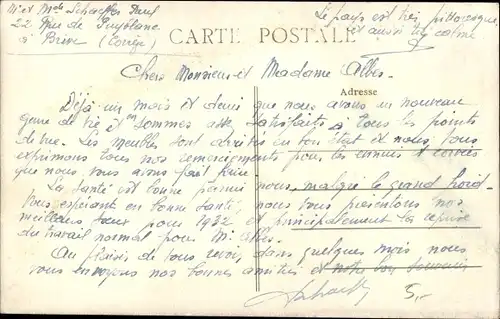 Mr et Mde Schaeffer Paul
22 Rue de Puyblanc
à Brive (Corrèze)
Le pays est très pittoresque
et aussi très calme
CARTE POSTALE
Chers Monsieur et Madame Albès.
Adresse
Déjà un mois et demi que nous avons un nouveau
genre de vie et en sommes assez satisfaits à tous les points
de vue. Les meubles sont arrivés en bon état et nous vous
exprimons tous nos remerciements pour les ennuis et corvées
que nous vous avons fait faire
La santé est bonne parmi nous, malgré le grand froid.
Vous espérant en bonne santé, nous vous présentons nos
meilleurs vœux pour 1932 et principalement la reprise
du travail normal pour Mr Albès.
Au plaisir de vous revoir dans quelques mois nous
vous envoyons nos bonnes amitiés et notre bon souvenir
5,-